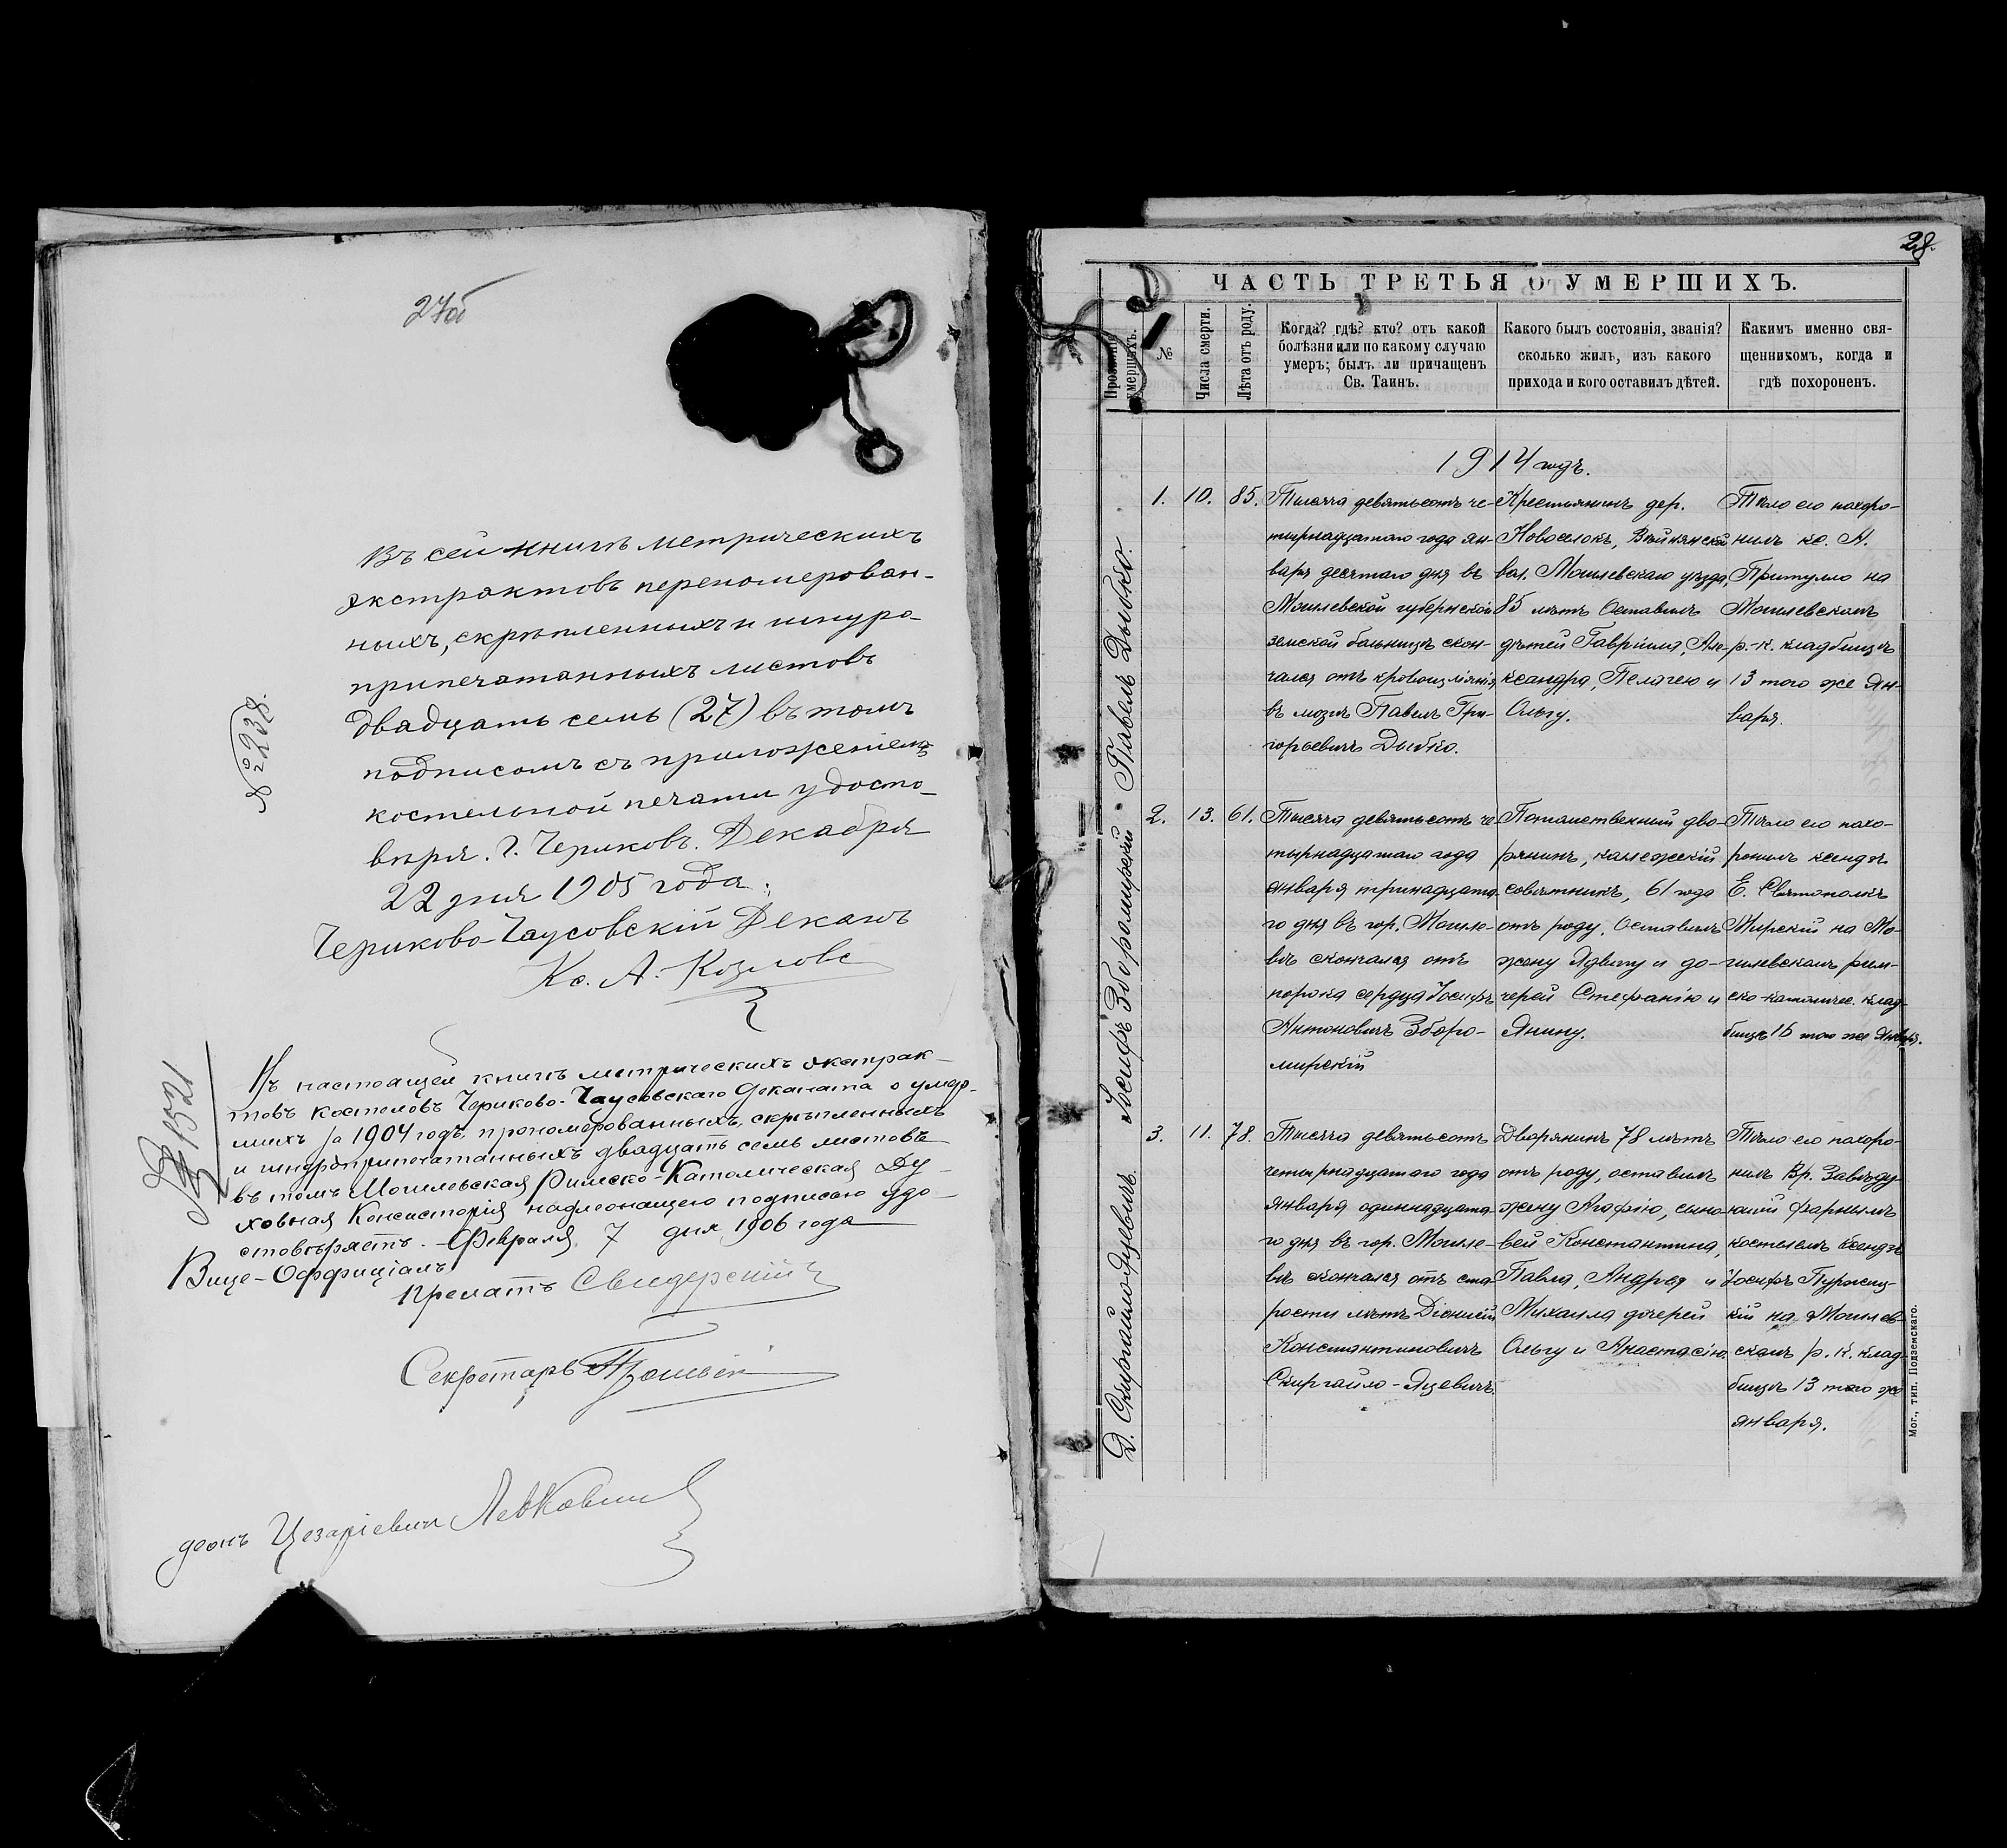 27об
Въ сей книгѣ метрическихъ
экстрактовъ переномерован-
ныхъ, скрѣпленныхъ и шнуро-
припечатанныхъ листовъ
двадцать семь (27) въ томъ
подписомъ съ приложеніемъ
костельной печати удосто-
вѣряю. г. Чериковъ. Декабря
22 дня 1905 года.
Чериково-Чаусовскій Деканъ
Кс. А. Козловс
№ 238.
№ 1521
Въ настоящей книгѣ метрическихъ экстрак-
товъ костеловъ Чериково-Чаусовскаго Деканата о умер-
шихъ за 1904 годъ, прономерованныхъ, скрѣпленныхъ
и шнуроприпечатанныхъ двадцать семь листовъ
въ томъ Могилевская Римско-Католическая Ду-
ховная Консисторія надлежащею подписью удо-
стовѣряетъ. Февраля 7 дня 1906 года
Вице-Оффиціалъ
Прелатъ Свидерскій
Секретарь
Цезаріевич Левкович
28.
ЧАСТЬ ТРЕТЬЯ О УМЕРШИХЪ.
Прозваніе умершихъ.
№
Числа смерти.
Лѣта отъ роду.
Когда? гдѣ? кто? отъ какой
болѣзни или по какому случаю
умеръ; былъ ли причащенъ
Св. Таинъ.
Какого былъ состоянія, званія?
сколько жилъ, изъ какого
прихода и кого оставилъ дѣтей.
Каким‌ъ именно свя-
щенникомъ, когда и
гдѣ похороненъ.
1914 годъ.
Павелъ Дыбко.
1. 10. 85.
Тысяча девятьсотъ че-
тырнадцатаго года ян-
варя десятаго дня въ
Могилевской губернской
земской больницѣ скон-
чался отъ кровоизліянія
въ мозгъ Павелъ Гри-
горьевичъ Дыбко.
Крестьянинъ дер.
Новоселокъ, Вейнянской
вол. Могилевскаго уѣзда,
85 лѣтъ Оставилъ
дѣтей Гавріила, Але-
ксандра, Пелагею и
Ольгу.
Тѣло его похоро-
нилъ кс. А.
Притулло на
Могилевскомъ
р.-к. кладбищѣ
13 того же Ян-
варя.
Іосифъ Зборомирскій
2. 13. 61.
Тысяча девятьсотъ че-
тырнадцатаго года
января тринадцата-
го дня въ гор. Могиле-
вѣ скончался отъ
порока сердца Іосифъ
Антоновичъ Зборо-
мирскій
Потомственный дво-
рянинъ, коллежскій
совѣтникъ, 61 года
отъ роду. Оставилъ
жену Ядвигу и до-
черей Стефанію и
Янину.
Тѣло его похо-
ронилъ ксендзъ
Е. Святополкъ
Мирскій на Мо-
гилевскомъ рим-
ско-католичес. клад-
бищѣ 15 того же Января.
Д. Скиргайло-Яцевичъ.
3. 11. 78.
Тысяча девятьсотъ
четырнадцатаго года
января одиннадцата-
го дня въ гор. Могиле-
вѣ скончался отъ ста-
рости лѣтъ Діонисій
Константиновичъ
Скиргайло-Яцевичъ
Дворянинъ 78 лѣтъ
отъ роду, оставилъ
жену Агафію, сыно-
вей Константина,
Павла, Андрея и
Михаила дочерей
Ольгу и Анастасію.
Тѣло его похоро-
нилъ Вр. Завѣду-
ющій фарнымъ
костеломъ ксендзъ
Іосифъ
на Могилев-
скомъ р. к. клад-
бищѣ 13 того же
января.
Мог., тип. Подземскаго.